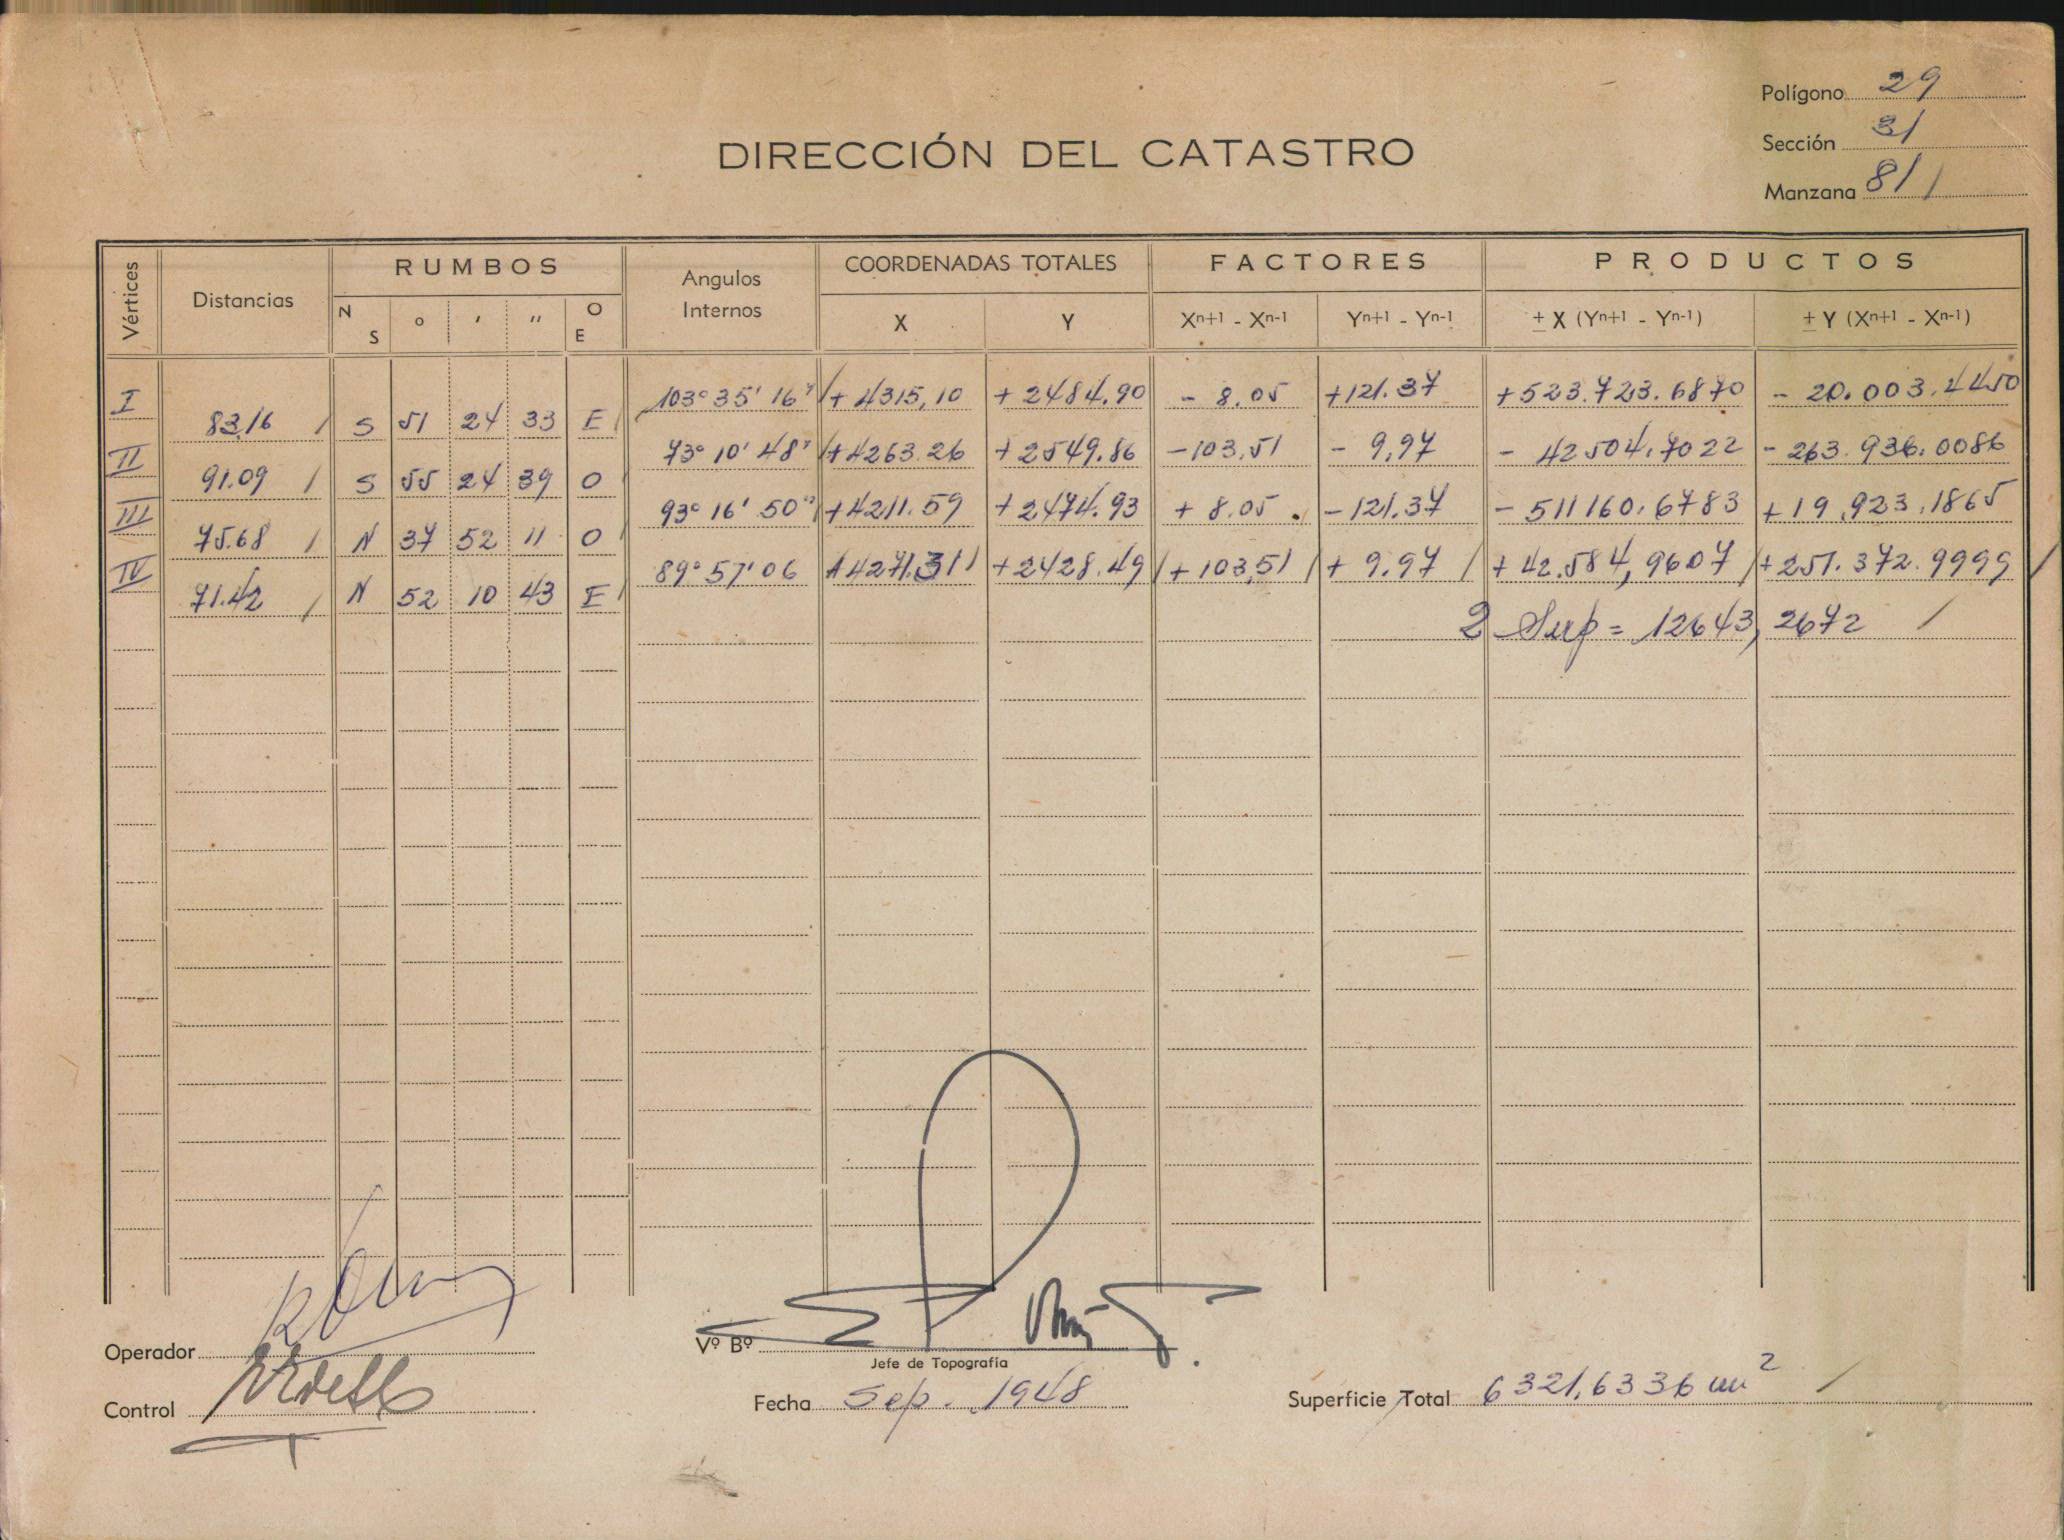 Polígono 29
Sección 31
Manzana 81 /
DIRECCIÓN DEL CATASTRO
Vértices Distancias RUMBOS Angulos Internos COORDENADAS TOTALES FACTORES PRODUCTOS
N S ° ' " O E X Y Xn+1 - Xn-1 Yn+1 - Yn-1 ± X (Yn+1 - Yn-1) ± Y (Xn+1 - Xn-1)
I 103° 35' 16" + 4315,10 + 2484.90 - 8.05 +121.37 +523.723.6870 - 20.003.4450
83.16 / S 51 24 33 E
II 73° 10' 48" +4263.26 +2549.86 -103,51 - 9,97 - 42504.7022 - 263.936.0086
91.09 / S 55 24 39 O
III 93° 16' 50" +4211.59 +2474.93 + 8.05 . -121.37 - 511160.6783 +19.923.1865
75.68 / N 37 52 11 O
IV 89° 57' 06 +4271.31 / +2428.49 / + 103,51 / + 9.97 / +42.584,9607 / +251.372.9999 /
71.42 / N 52 10 43 E
2 Sup = 12643,2672 /
Operador
Vº Bº
Jefe de Topografía
Control
Fecha Sep. 1948
Superficie Total 6321,6336 m² /